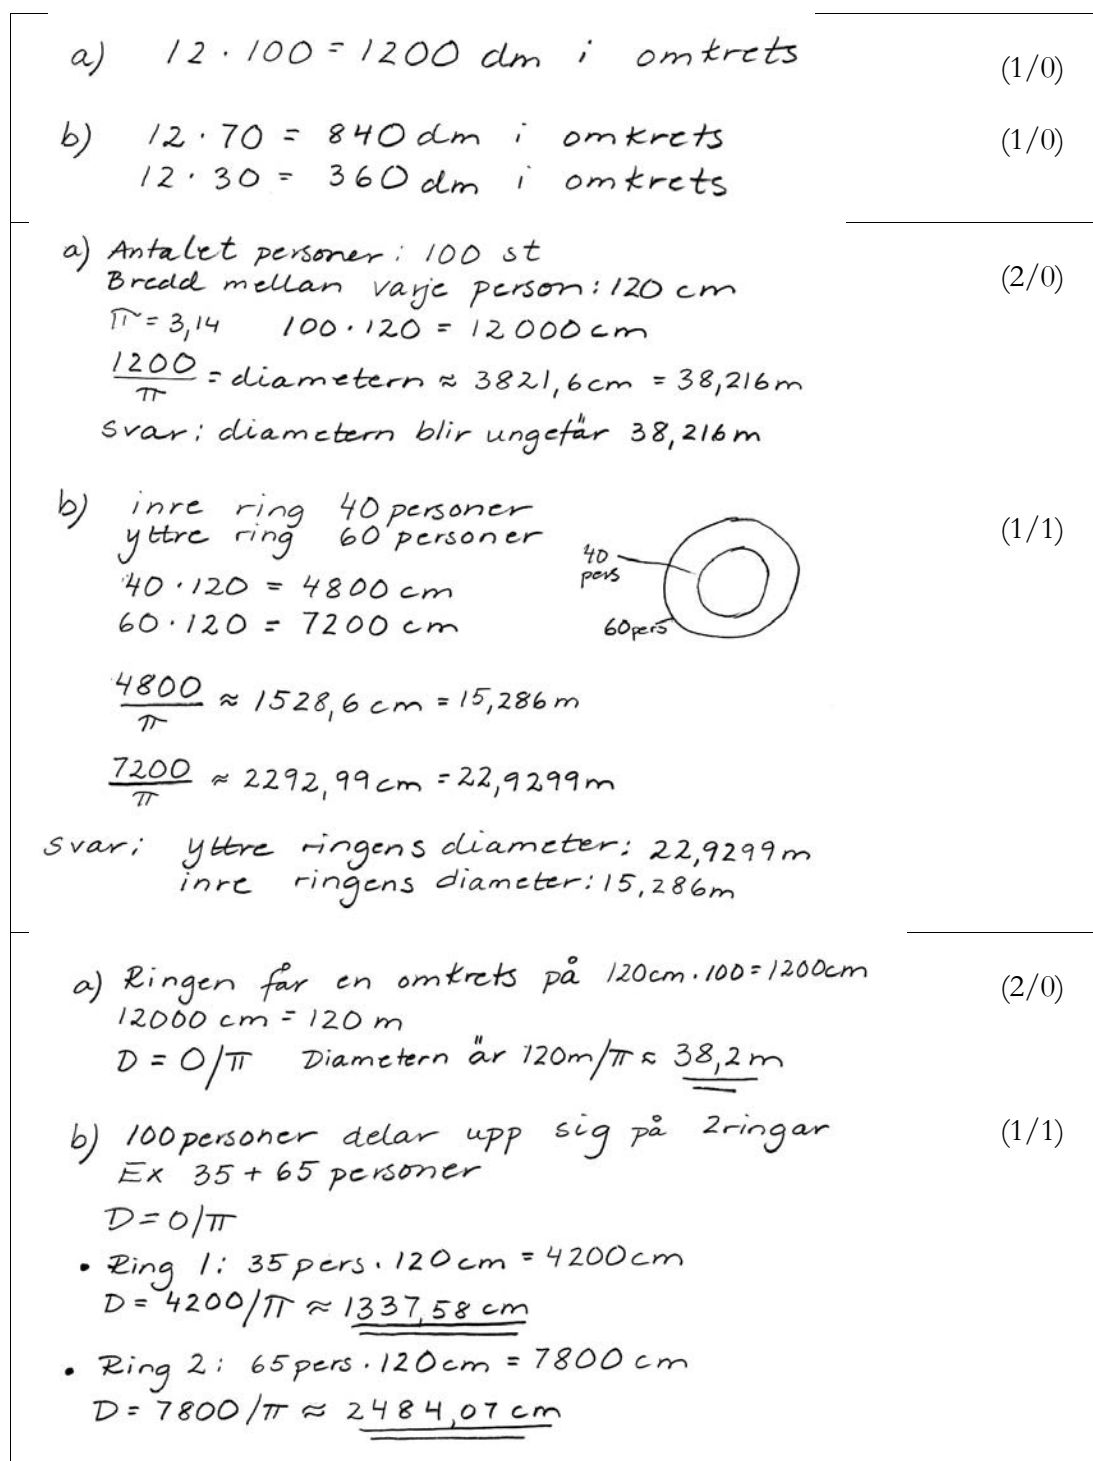 a) 12 · 100 = 1200 dm i omkrets (1/0)
b) 12 · 70 = 840 dm i omkrets (1/0)
12 · 30 = 360 dm i omkrets
a) Antalet personer: 100 st
Bredd mellan varje person: 120 cm (2/0)
π = 3,14 100 · 120 = 12000 cm
1200/π = diametern ≈ 3821,6 cm = 38,216 m
svar: diametern blir ungefär 38,216 m
b) inre ring 40 personer (1/1)
yttre ring 60 personer
40 pers
60 pers
40 · 120 = 4800 cm
60 · 120 = 7200 cm
4800/π ≈ 1528,6 cm = 15,286 m
7200/π ≈ 2292,99 cm = 22,9299 m
svar: yttre ringens diameter: 22,9299 m
inre ringens diameter: 15,286 m
a) Ringen får en omkrets på 120cm · 100 = 1200cm (2/0)
12000 cm = 120 m
D = O/π Diametern är 120m/π ≈ 38,2 m
b) 100 personer delar upp sig på 2 ringar (1/1)
Ex 35 + 65 personer
D = O/π
• Ring 1: 35 pers · 120 cm = 4200 cm
D = 4200/π ≈ 1337,58 cm
• Ring 2: 65 pers · 120 cm = 7800 cm
D = 7800/π ≈ 2484,07 cm